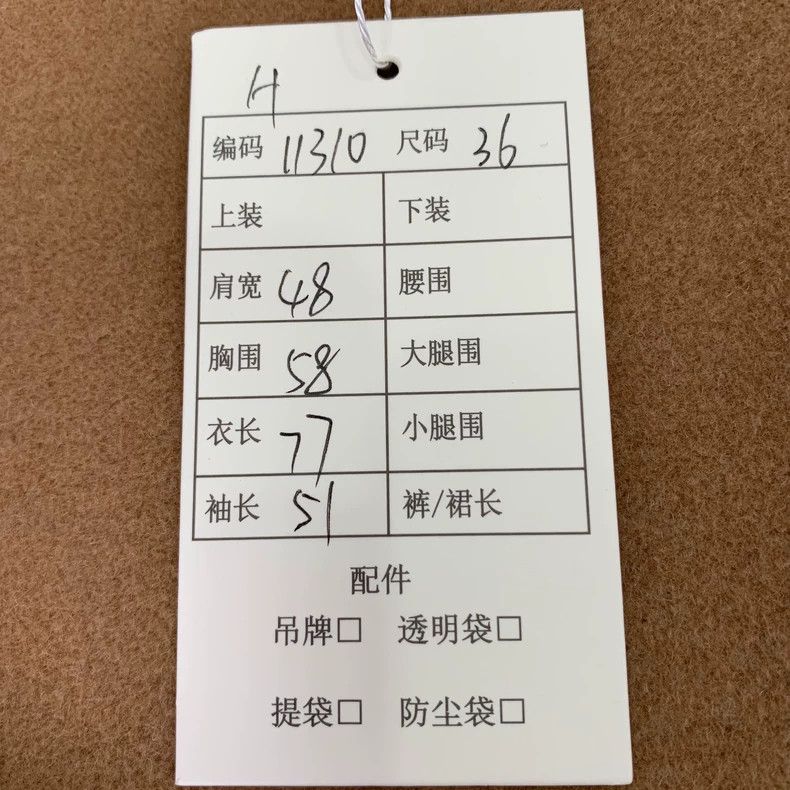 H
编码 11310 尺码 36
上装 下装
肩宽 48 腰围
胸围 58 大腿围
衣长 77 小腿围
袖长 51 裤/裙长
配件
吊牌□ 透明袋□
提袋□ 防尘袋□